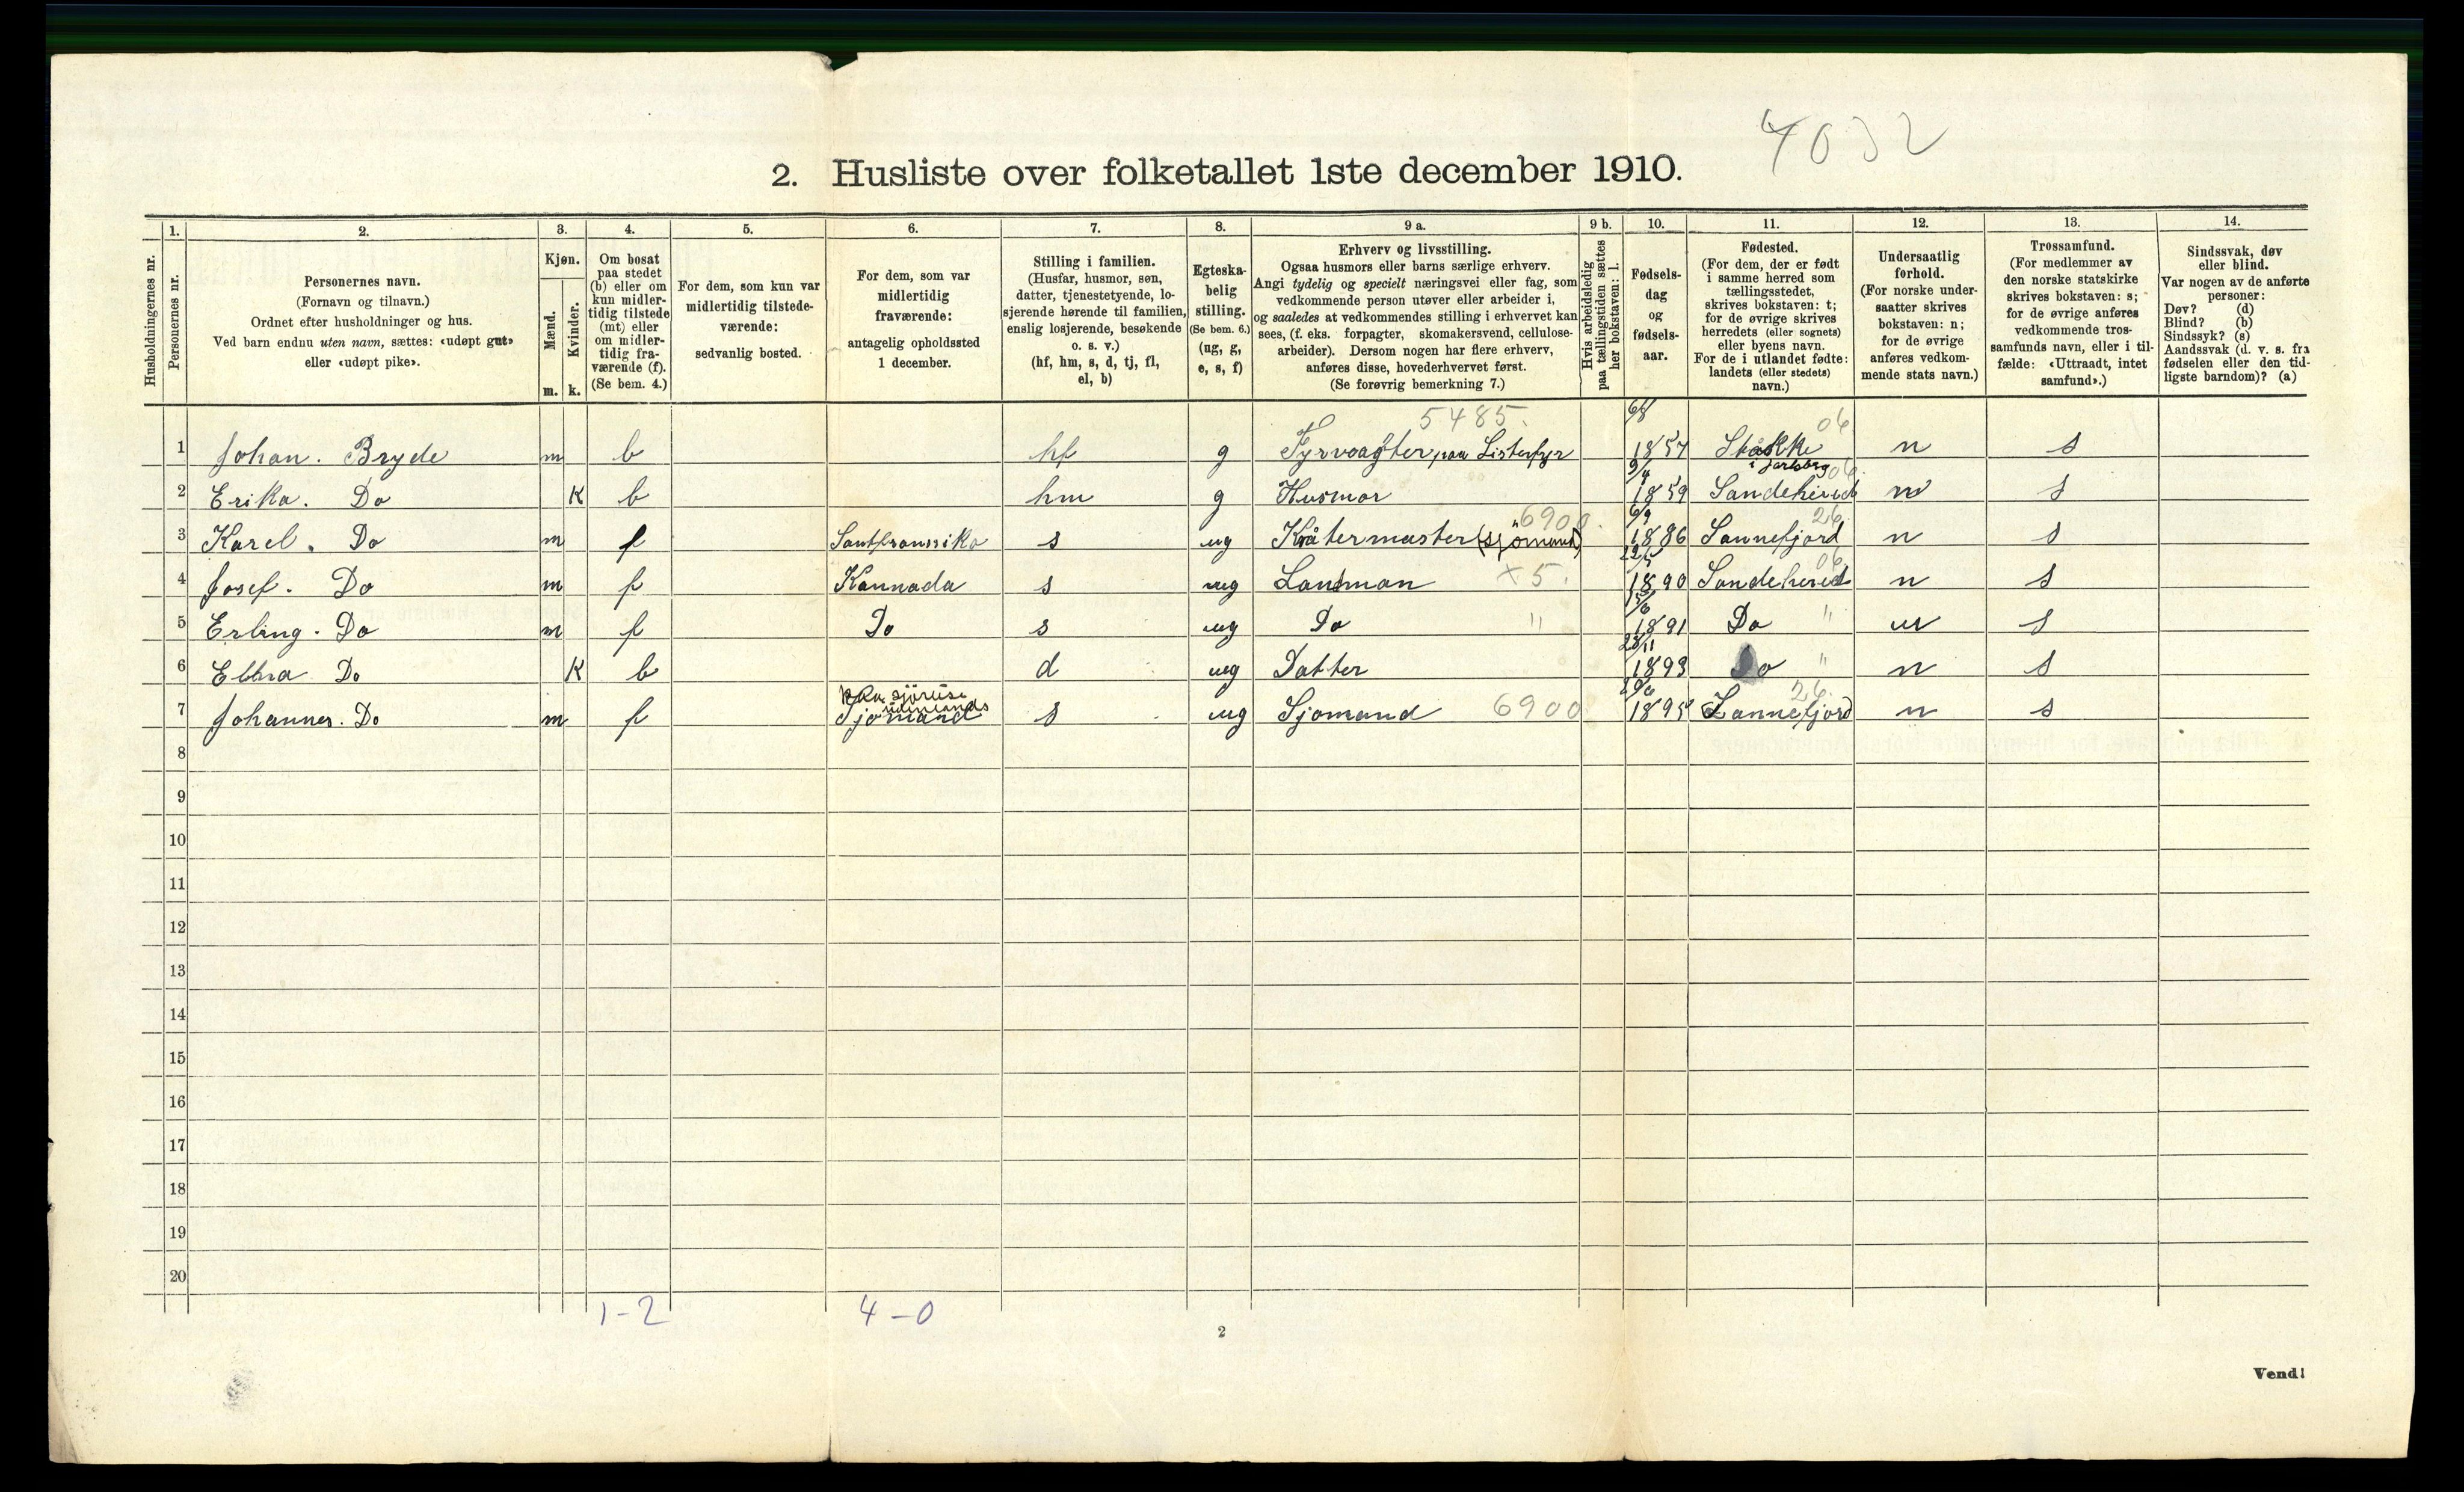 4032
2. Husliste over folketallet 1ste december 1910.
Husholdningernes nr.
1.
Personernes nr.
2.
Personernes navn.
(Fornavn og tilnavn.)
Ordnet efter husholdninger og hus.
Ved barn endnu uten navn, sættes: «udøpt gut»
eller «udøpt pike».
3.
Kjøn.
Mænd.
m.
Kvinder.
k.
4.
Om bosat
paa stedet
(b) eller om
kun midler-
tidig tilstede
(mt) eller
om midler-
tidig fra-
værende (f).
(Se bem. 4.)
5.
For dem, som kun var
midlertidig tilstede-
værende:
sedvanlig bosted.
6.
For dem, som var
midlertidig
fraværende:
antagelig opholdssted
1 december.
7.
Stilling i familien.
(Husfar, husmor, søn,
datter, tjenestetyende, lo-
sjerende hørende til familien,
enslig losjerende, besøkende
o. s. v.)
(hf, hm, s, d, tj, fl,
el, b)
8.
Egteska-
belig
stilling.
(Se bem. 6.)
(ug, g,
e, s, f)
9 a.
Erhverv og livsstilling.
Ogsaa husmors eller barns særlige erhverv.
Angi tydelig og specielt næringsvei eller fag, som
vedkommende person utøver eller arbeider i,
og saaledes at vedkommendes stilling i erhvervet kan
sees, (f. eks. forpagter, skomakersvend, cellulose-
arbeider). Dersom nogen har flere erhverv,
anføres disse, hovederhvervet først.
(Se forøvrig bemerkning 7.)
9 b.
Hvis arbeidsledig
paa tællingstiden sættes
her bokstaven: l.
10.
Fødsels-
dag
og
fødsels-
aar.
11.
Fødested.
(For dem, der er født
i samme herred som
tællingsstedet,
skrives bokstaven: t;
for de øvrige skrives
herredets (eller sognets)
eller byens navn.
For de i utlandet fødte:
landets (eller stedets)
navn.)
12.
Undersaatlig
forhold.
(For norske under-
saatter skrives
bokstaven: n;
for de øvrige
anføres vedkom-
mende stats navn.)
13.
Trossamfund.
(For medlemmer av
den norske statskirke
skrives bokstaven: s;
for de øvrige anføres
vedkommende tros-
samfunds navn, eller i til-
fælde: «Uttraadt, intet
samfund».)
14.
Sindssvak, døv
eller blind.
Var nogen av de anførte
personer:
Døv? (d)
Blind? (b)
Sindssyk? (s)
Aandssvak (d. v. s. fra
fødselen eller den tid-
ligste barndom)? (a)
5485. 06
1 Johan. Bryde m b hf g Fyrvogter paa Listerfyr 1857 Stokke n s
i Jarlsberg 06
2 Erika. Do K b hm g Husmor 9/4 1859 Sandeherred n s
6900. 26.
3 Karel. Do m f Santfranssiko s ug Kvåtermaster (sjømand) 6/9 1886 Sannefjord n s
4 Josef. Do m f Kannada s ug Lanman x5. 22/5 1890 Sandeherred 06 n s
5 Erling. Do m f Do s ug Do " 15/6 1891 Do " n s
6 Ebbra Do K b d ug Datter 28/11 1893 Do " n s
paa sjøreise
utenlands
7 Johannes. Do m f Sjømand s ug Sjomand 6900 1895 Sannefjord 26. n s
8
9
10
11
12
13
14
15
16
17
18
19
20
1-2 4-0
2
Vend!